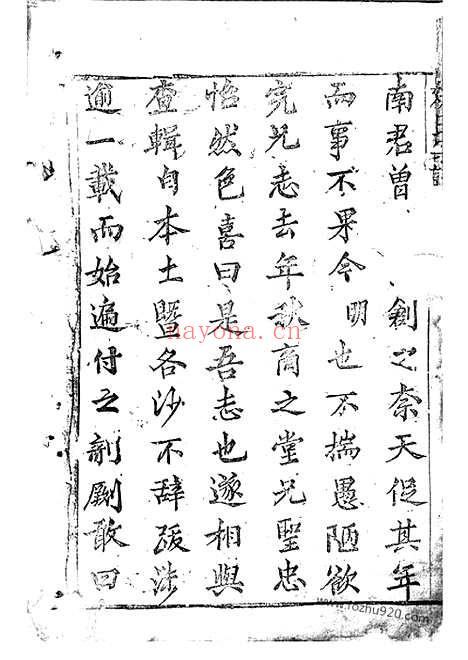 南君曾 創之奈天促其年
而事不果今 明也不揣愚陋欲
完兄志去年秋商之堂兄聖忠
怡然色喜曰是吾志也遂相與
查輯自本土暨各沙不辞跋涉
逾一載而始遍付之剞劂敢曰
nayona.cn
www.fozhu920.com